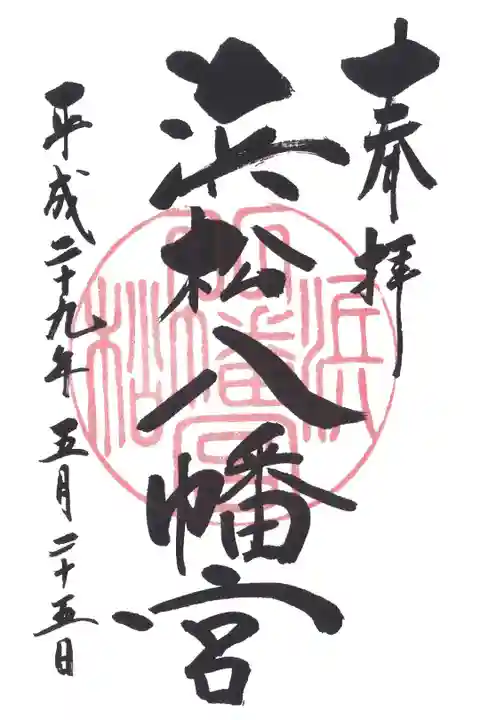 奉拝
浜松八幡宮
平成二十九年五月二十五日
浜松
八幡宮